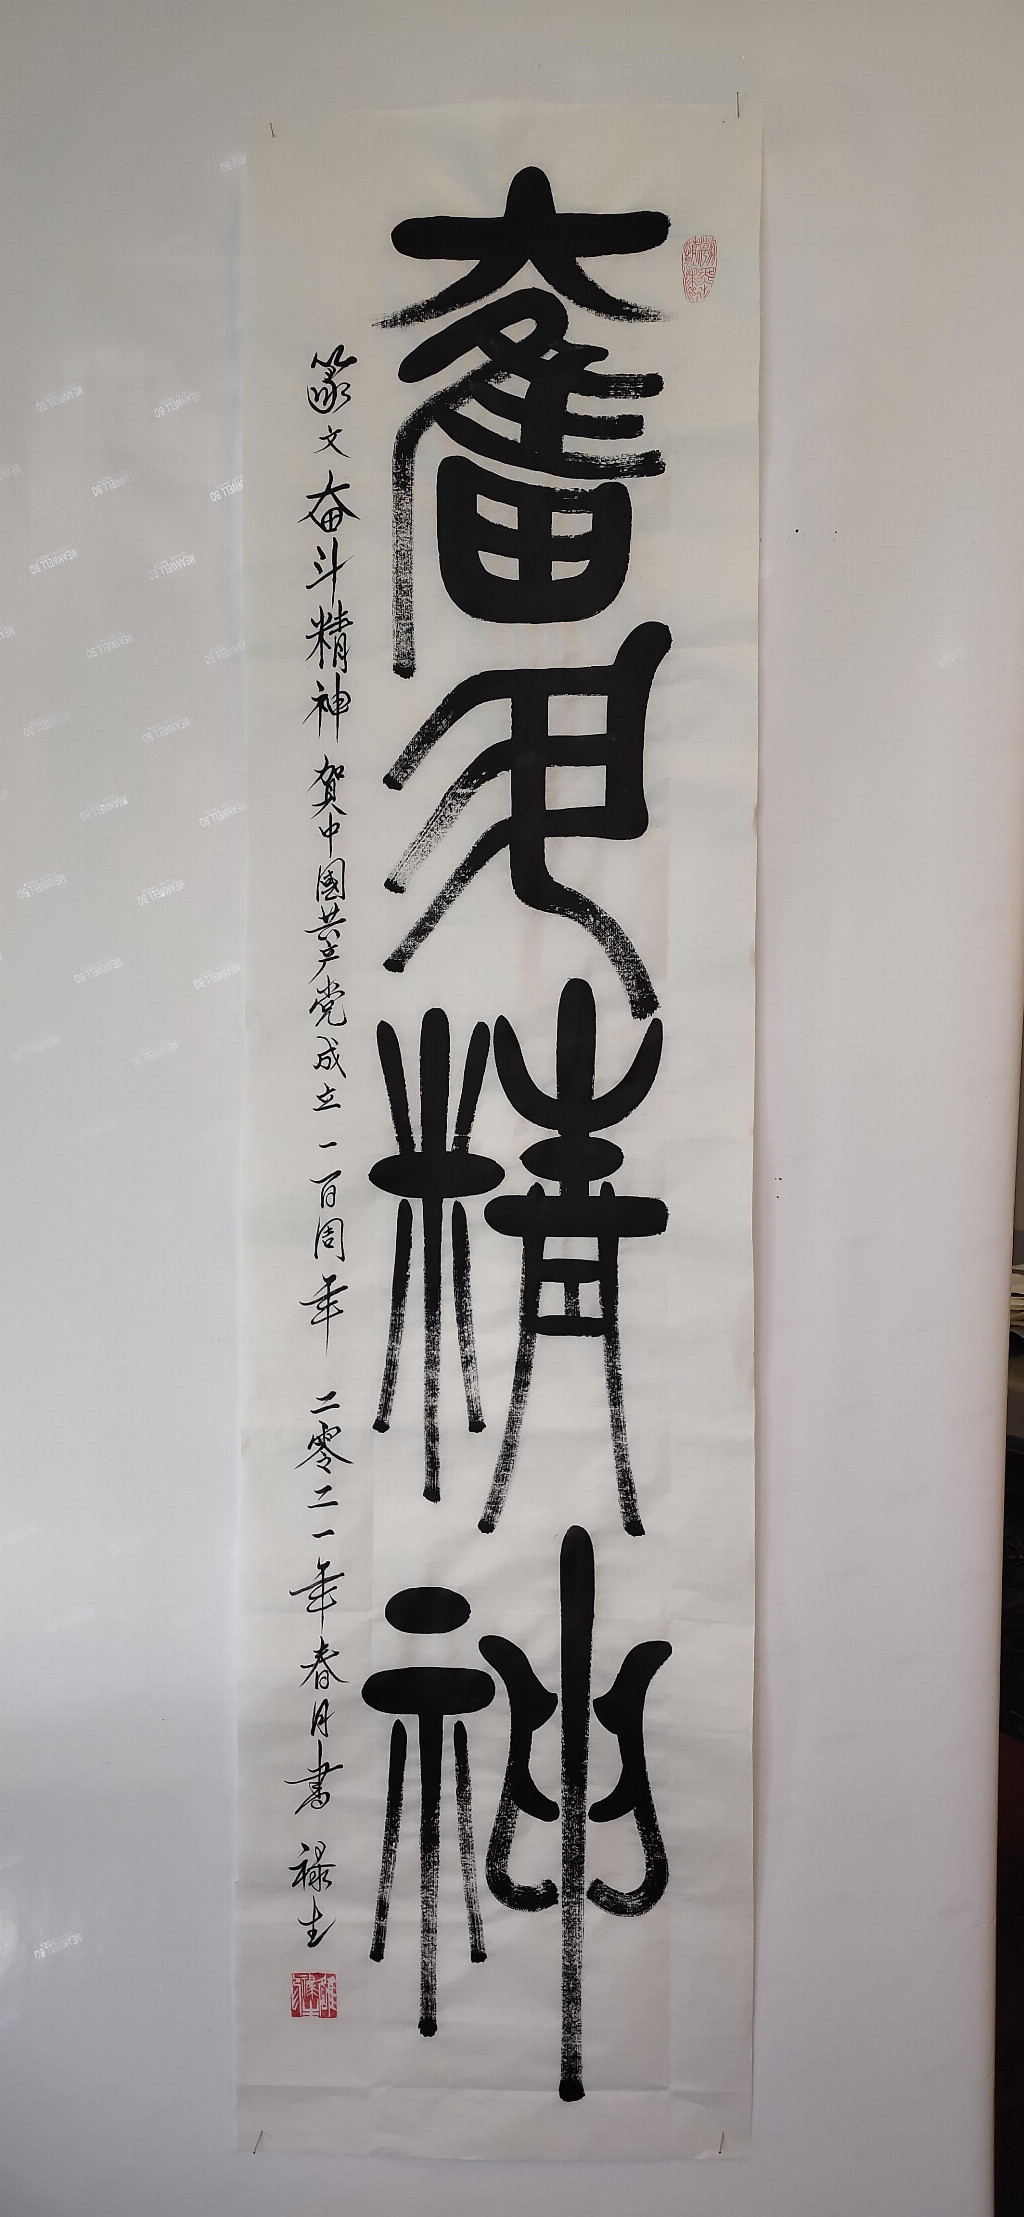 奮斗精神
篆文奋斗精神 贺中國共产党成立一百周年 二零二一年春月書 禄生
MEANWELL BO